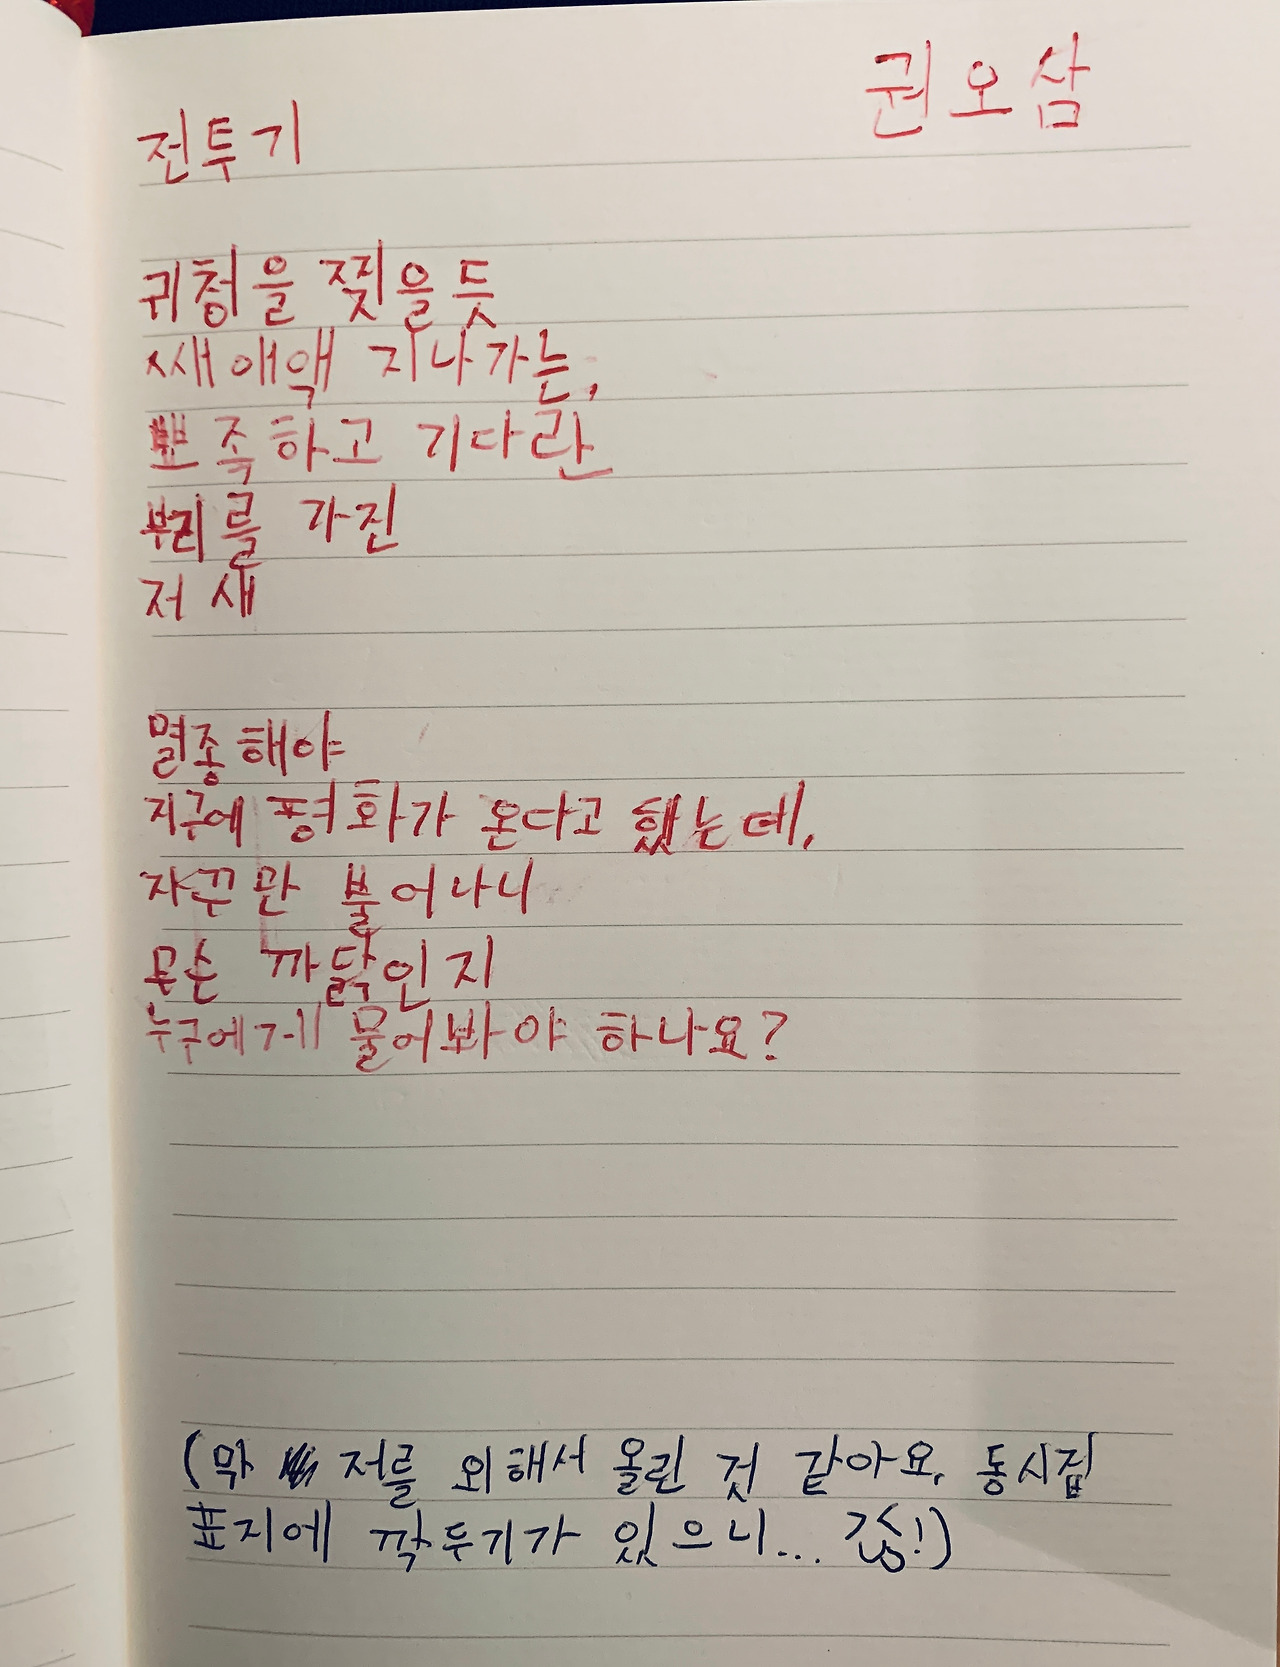 권오삼
전투기
귀청을 찢을 듯
쌔애액 지나가는,
뾰족하고 기다란
부리를 가진
저 새
멸종해야
지구에 평화가 온다고 했는데,
자꾸만 불어나니
무슨 까닭인지
누구에게 물어봐야 하나요?
(막 저를 위해서 올린 것 같아요. 동시집
표지에 깍두기가 있으니...!)